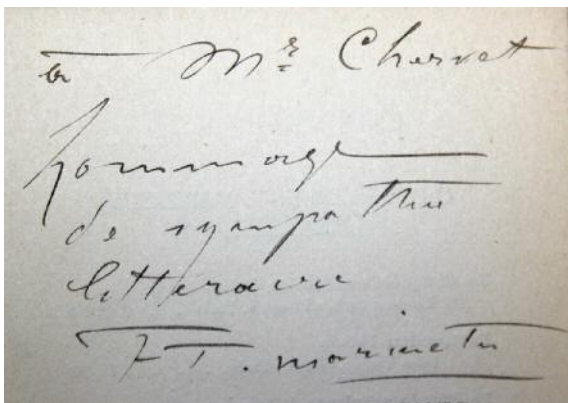 à Mr Chervet
hommage
de sympathie
littéraire
F T. Marinetti